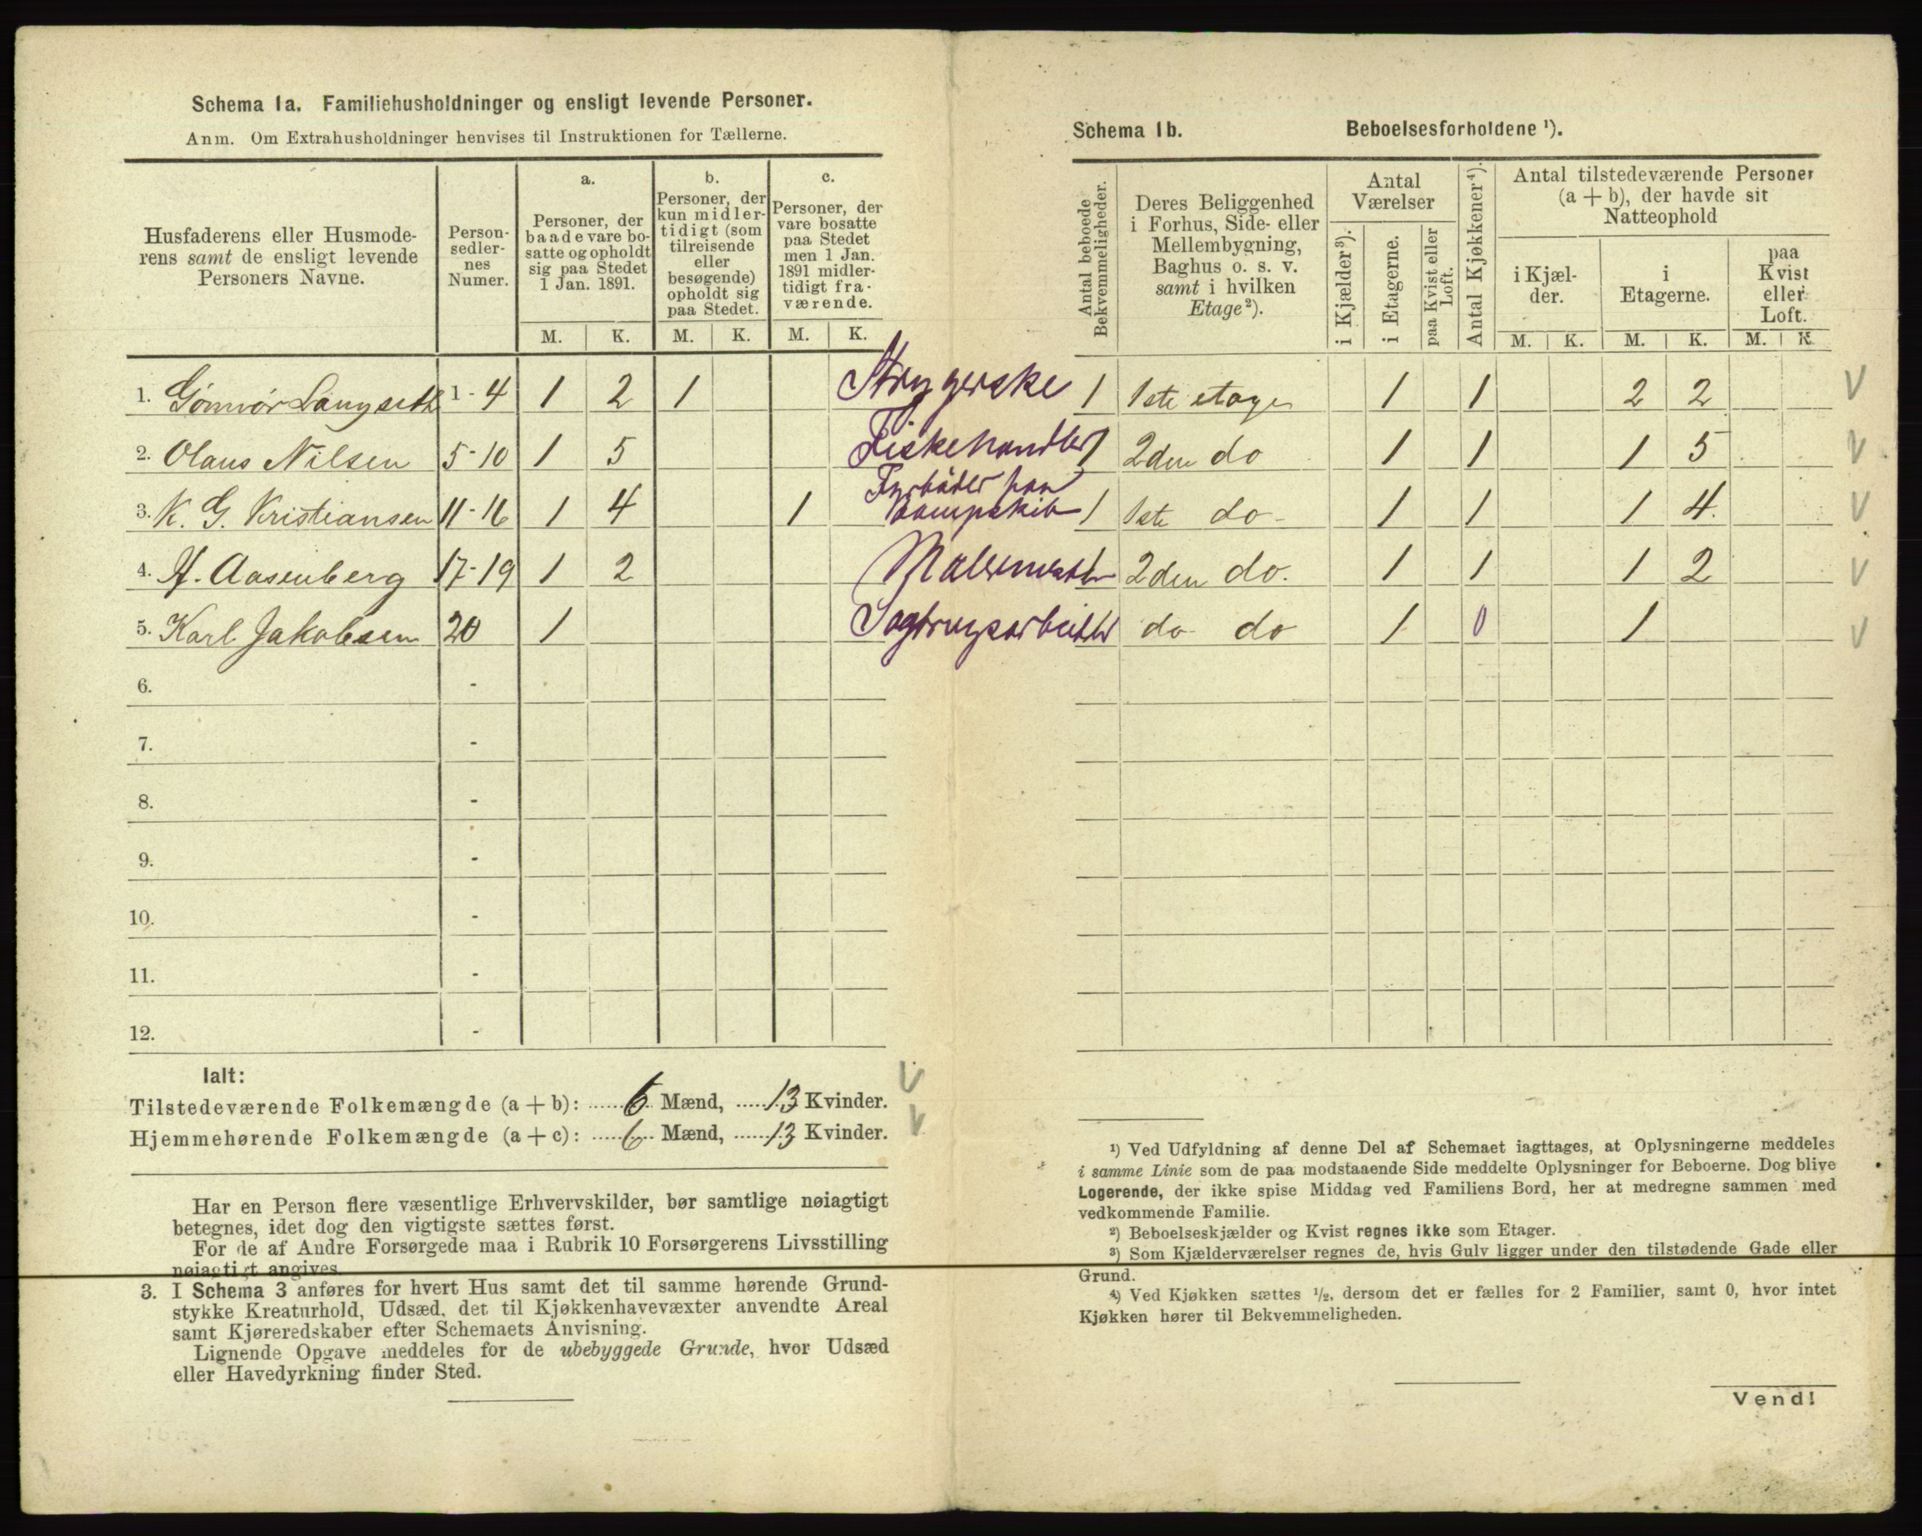 Schema 1a. Familiehusholdninger og ensligt levende Personer.
Anm. Om Extrahusholdninger henvises til Instruktionen for Tællerne.
Husfaderens eller Husmode-
rens samt de ensligt levende
Personers Navne.
Person-
sedler-
nes
Numer.
a.
Personer, der
baade vare bo-
satte og opholdt
sig paa Stedet
1 Jan. 1891.
b.
Personer, der
kun midler-
tidigt (som
tilreisende
eller
besøgende)
opholdt sig
paa Stedet.
c.
Personer, der
vare bosatte
paa Stedet
men 1 Jan.
1891 midler-
tidigt fra-
værende.
M. K. M. K. M. K.
1. Gønnør Langseth 1-4 1 2 1 Strygerske
2. Olaus Nilsen 5-10 1 5 Fiskehandler
3. K. G. Kristiansen 11-16 1 4 1 Fyrbøder paa
Dampskib
4. H. Aasenberg 17-19 1 2 Malermester
5. Karl Jakobsen 20 1 Sagbrugsarbeider
6. -
7. -
8. -
9. -
10. -
11. -
12. -
Ialt:
Tilstedeværende Folkemængde (a + b): 6 Mænd, 13 Kvinder.
Hjemmehørende Folkemængde (a + c): 6 Mænd, 13 Kvinder.
Har en Person flere væsentlige Erhvervskilder, bør samtlige nøiagtigt
betegnes, idet dog den vigtigste sættes først.
For de af Andre Forsørgede maa i Rubrik 10 Forsørgerens Livsstilling
nøiagtigt angives.
3. I Schema 3 anføres for hvert Hus samt det til samme hørende Grund-
stykke Kreaturhold, Udsæd, det til Kjøkkenhavevæxter anvendte Areal
samt Kjøreredskaber efter Schemaets Anvisning.
Lignende Opgave meddeles for de ubebyggede Grunde, hvor Udsæd
eller Havedyrkning finder Sted.
Schema 1b. Beboelsesforholdene ¹).
Antal beboede
Bekvemmeligheder.
Deres Beliggenhed
i Forhus, Side- eller
Mellembygning,
Baghus o. s. v.
samt i hvilken
Etage²).
Antal
Værelser
i Kjælder³).
i Etagerne.
paa Kvist eller
Loft.
Antal Kjøkkener⁴).
Antal tilstedeværende Personer
(a + b), der havde sit
Natteophold
i Kjæl-
der.
i
Etagerne.
paa
Kvist
eller
Loft.
M. K. M. K. M. K.
1 1ste etage 1 1 2 2
1 2den do 1 1 1 5
1 1ste do 1 1 1 4
2den do. 1 1 1 2
do do 1 0 1
¹) Ved Udfyldning af denne Del af Schemaet iagttages, at Oplysningerne meddeles
i samme Linie som de paa modstaaende Side meddelte Oplysninger for Beboerne. Dog blive
Logerende, der ikke spise Middag ved Familiens Bord, her at medregne sammen med
vedkommende Familie.
²) Beboelseskjælder og Kvist regnes ikke som Etager.
³) Som Kjælderværelser regnes de, hvis Gulv ligger under den tilstødende Gade eller
Grund.
⁴) Ved Kjøkken sættes ½, dersom det er fælles for 2 Familier, samt 0, hvor intet
Kjøkken hører til Bekvemmeligheden.
Vend!